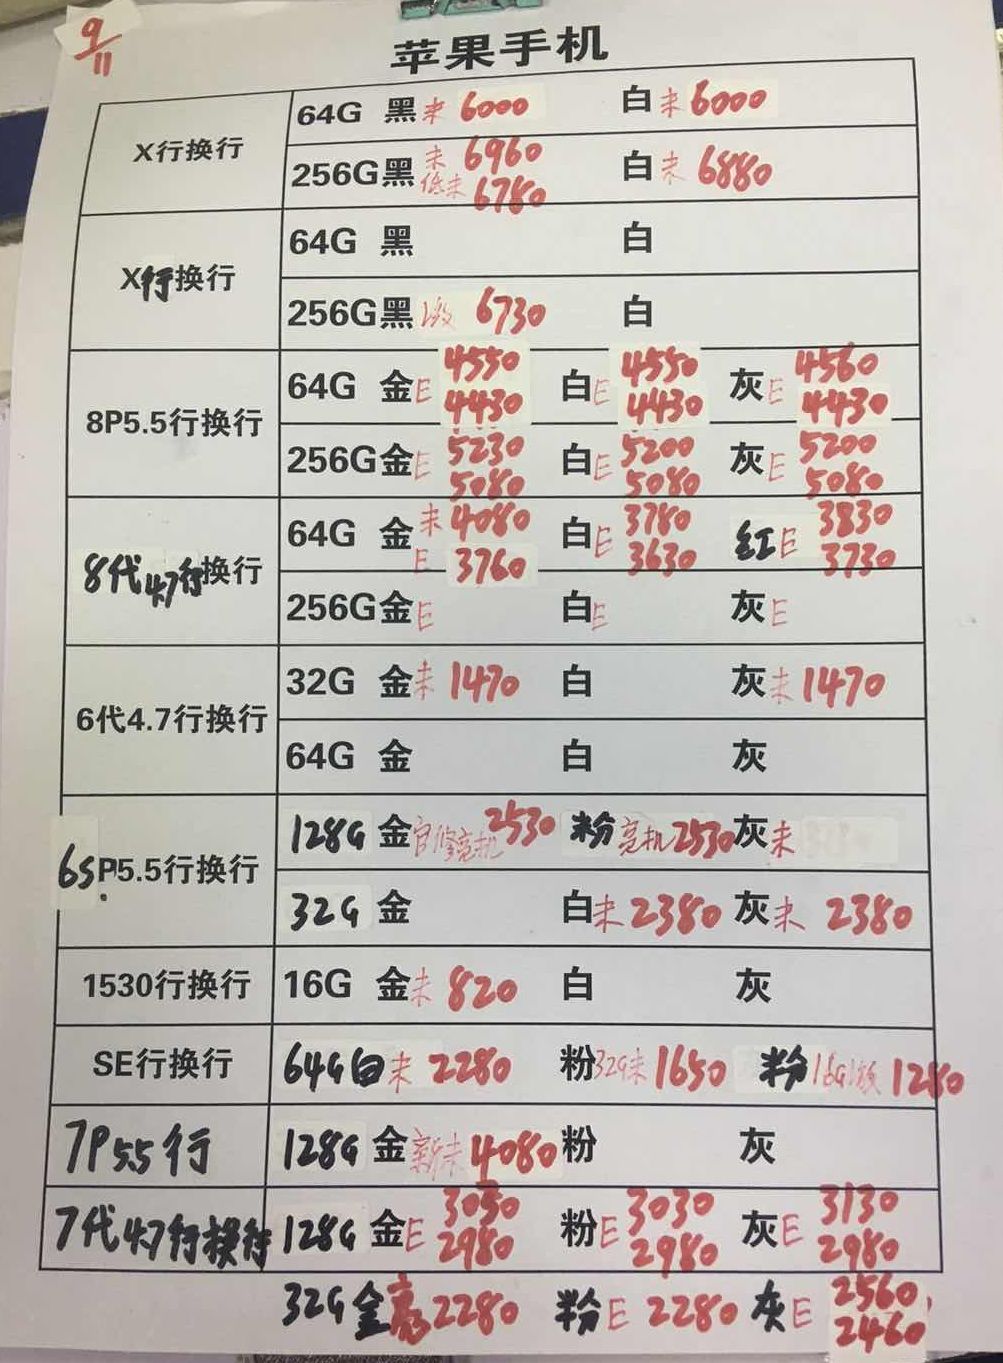 9/11
苹果手机
X行换行
64G 黑 未 6000 白 未 6000
256G 黑 未 6960 低未 6780 白 未 6880
X行换行
64G 黑 白
256G 黑 6730 白
8P5.5行换行
64G 金 E 4550 4430 白 E 4550 4430 灰 E 4560 4430
256G 金 E 5230 5080 白 E 5200 5080 灰 E 5200 5080
8代4.7行换行
64G 金 未 4080 E 3760 白 E 3780 3630 红 E 3830 3730
256G 金 E 白 E 灰 E
6代4.7行换行
32G 金 未 1470 白 灰 未 1470
64G 金 白 灰
6SP5.5行换行
128G 金 官修亮机 2530 粉 亮机 2530 灰 未
32G 金 白 未 2380 灰 未 2380
1530行换行
16G 金 未 820 白 灰
SE行换行
64G 白 未 2280 粉 32G未 1650 粉 16G 1280
7P5.5行
128G 金 新未 4080 粉 灰
7代4.7行换行
128G 金 E 3050 2980 粉 E 3030 2980 灰 E 3130 2980
32G 金 亮 2280 粉 E 2280 灰 E 2560 2460